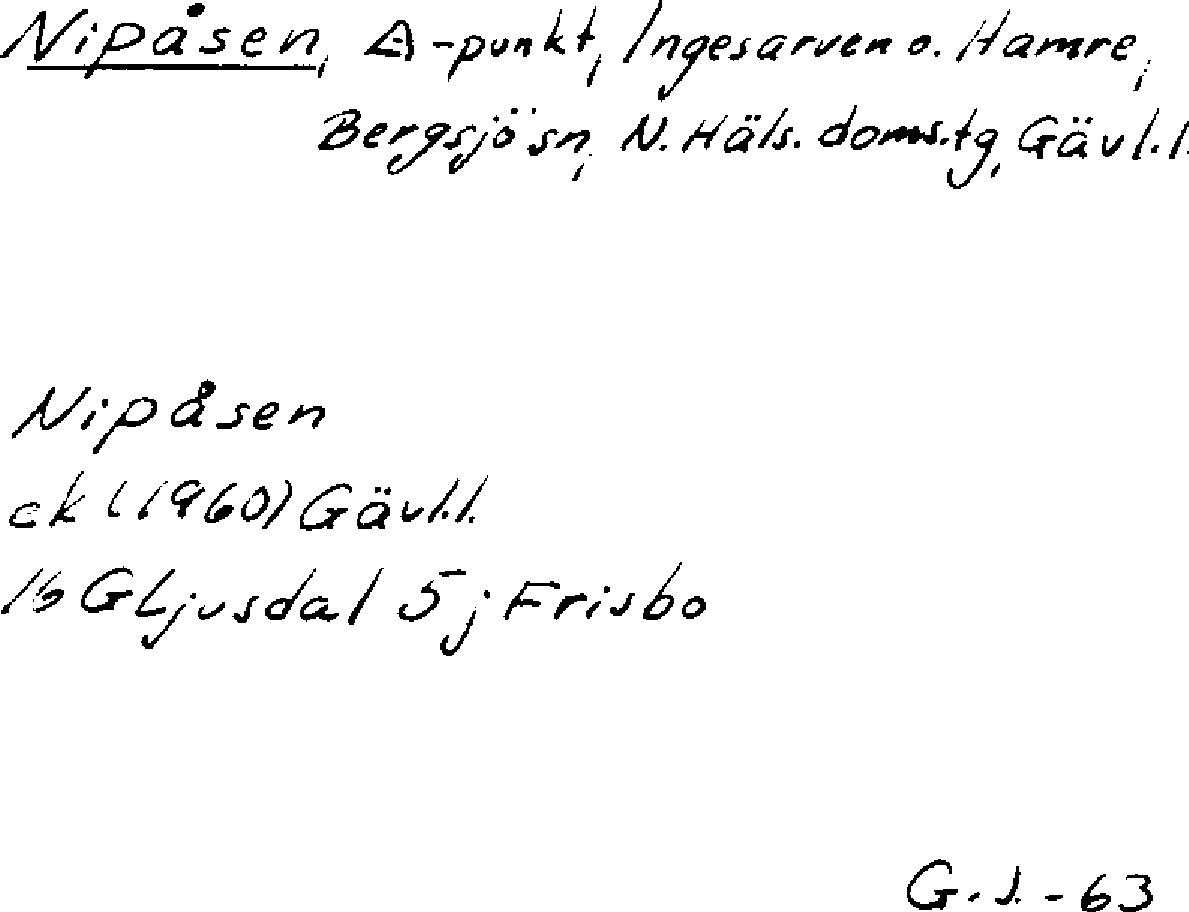 Nipåsen, △-punkt, Ingesarven o. Hamre,
Bergsjö sn, N. Häls. doms.tg, Gävl.l.
Nipåsen
ek (1960) Gävl.l.
16 G Ljusdal 5j Frisbo
G.J. -63